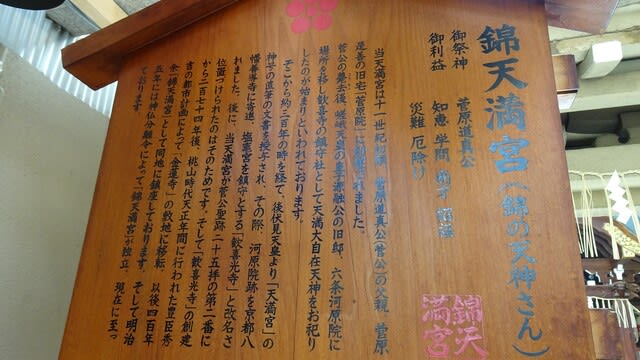 錦天満宮(錦の天神さん)
御祭神 菅原道真公
御利益 知恵 学問 商才 招福
災難 厄除け
当天満宮は十一世紀初頭、菅原道真公(菅公)の父親、菅原
是善の旧宅「菅原院」に創建されました。
菅公の薨去後、嵯峨天皇の皇子源融公の旧邸、六条河原院に
場所を移し歓喜寺の鎮守社として天満大自在天神をお祀り
したのが始まりといわれております。
そこから約三百年の時を経て、後伏見天皇より「天満宮」の
神号の直筆の文書を授与され、その際、河原院跡を京都八
幡善導寺に寄進、塩竈宮を鎮守とする「歓喜光寺」と改名さ
れました。後に、当天満宮が菅公聖跡二十五拝の第二番に
位置づけられたのはそのためです。そして「歓喜光寺」の創建
から二百七十四年後、桃山時代天正年間に行われた豊臣秀
吉の都市計画によって「金蓮寺」の敷地に移転、以後四百年
余「錦天満宮」として同地に鎮座しております。そして明治
五年には神仏分離令によって「錦天満宮」が独立、現在に至っ
ております。
錦天
満宮